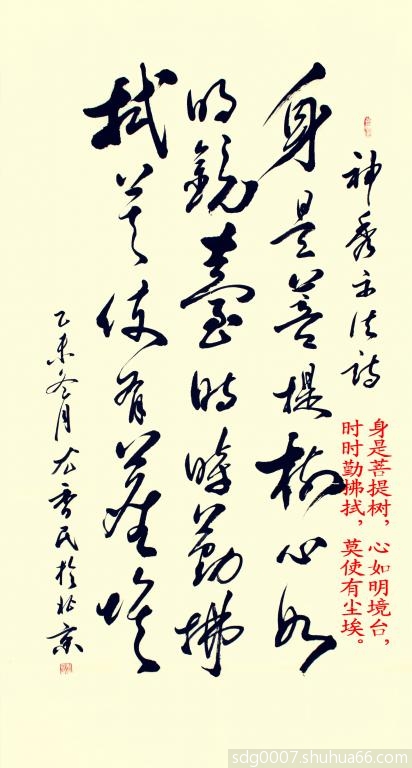 神秀示法詩
身是菩提樹心如
明鏡臺時時勤拂
拭莫使有塵埃
乙未冬月尤香民於北京
身是菩提树，心如明境台，
时时勤拂拭，莫使有尘埃。
sdg0007.shuhua66.com